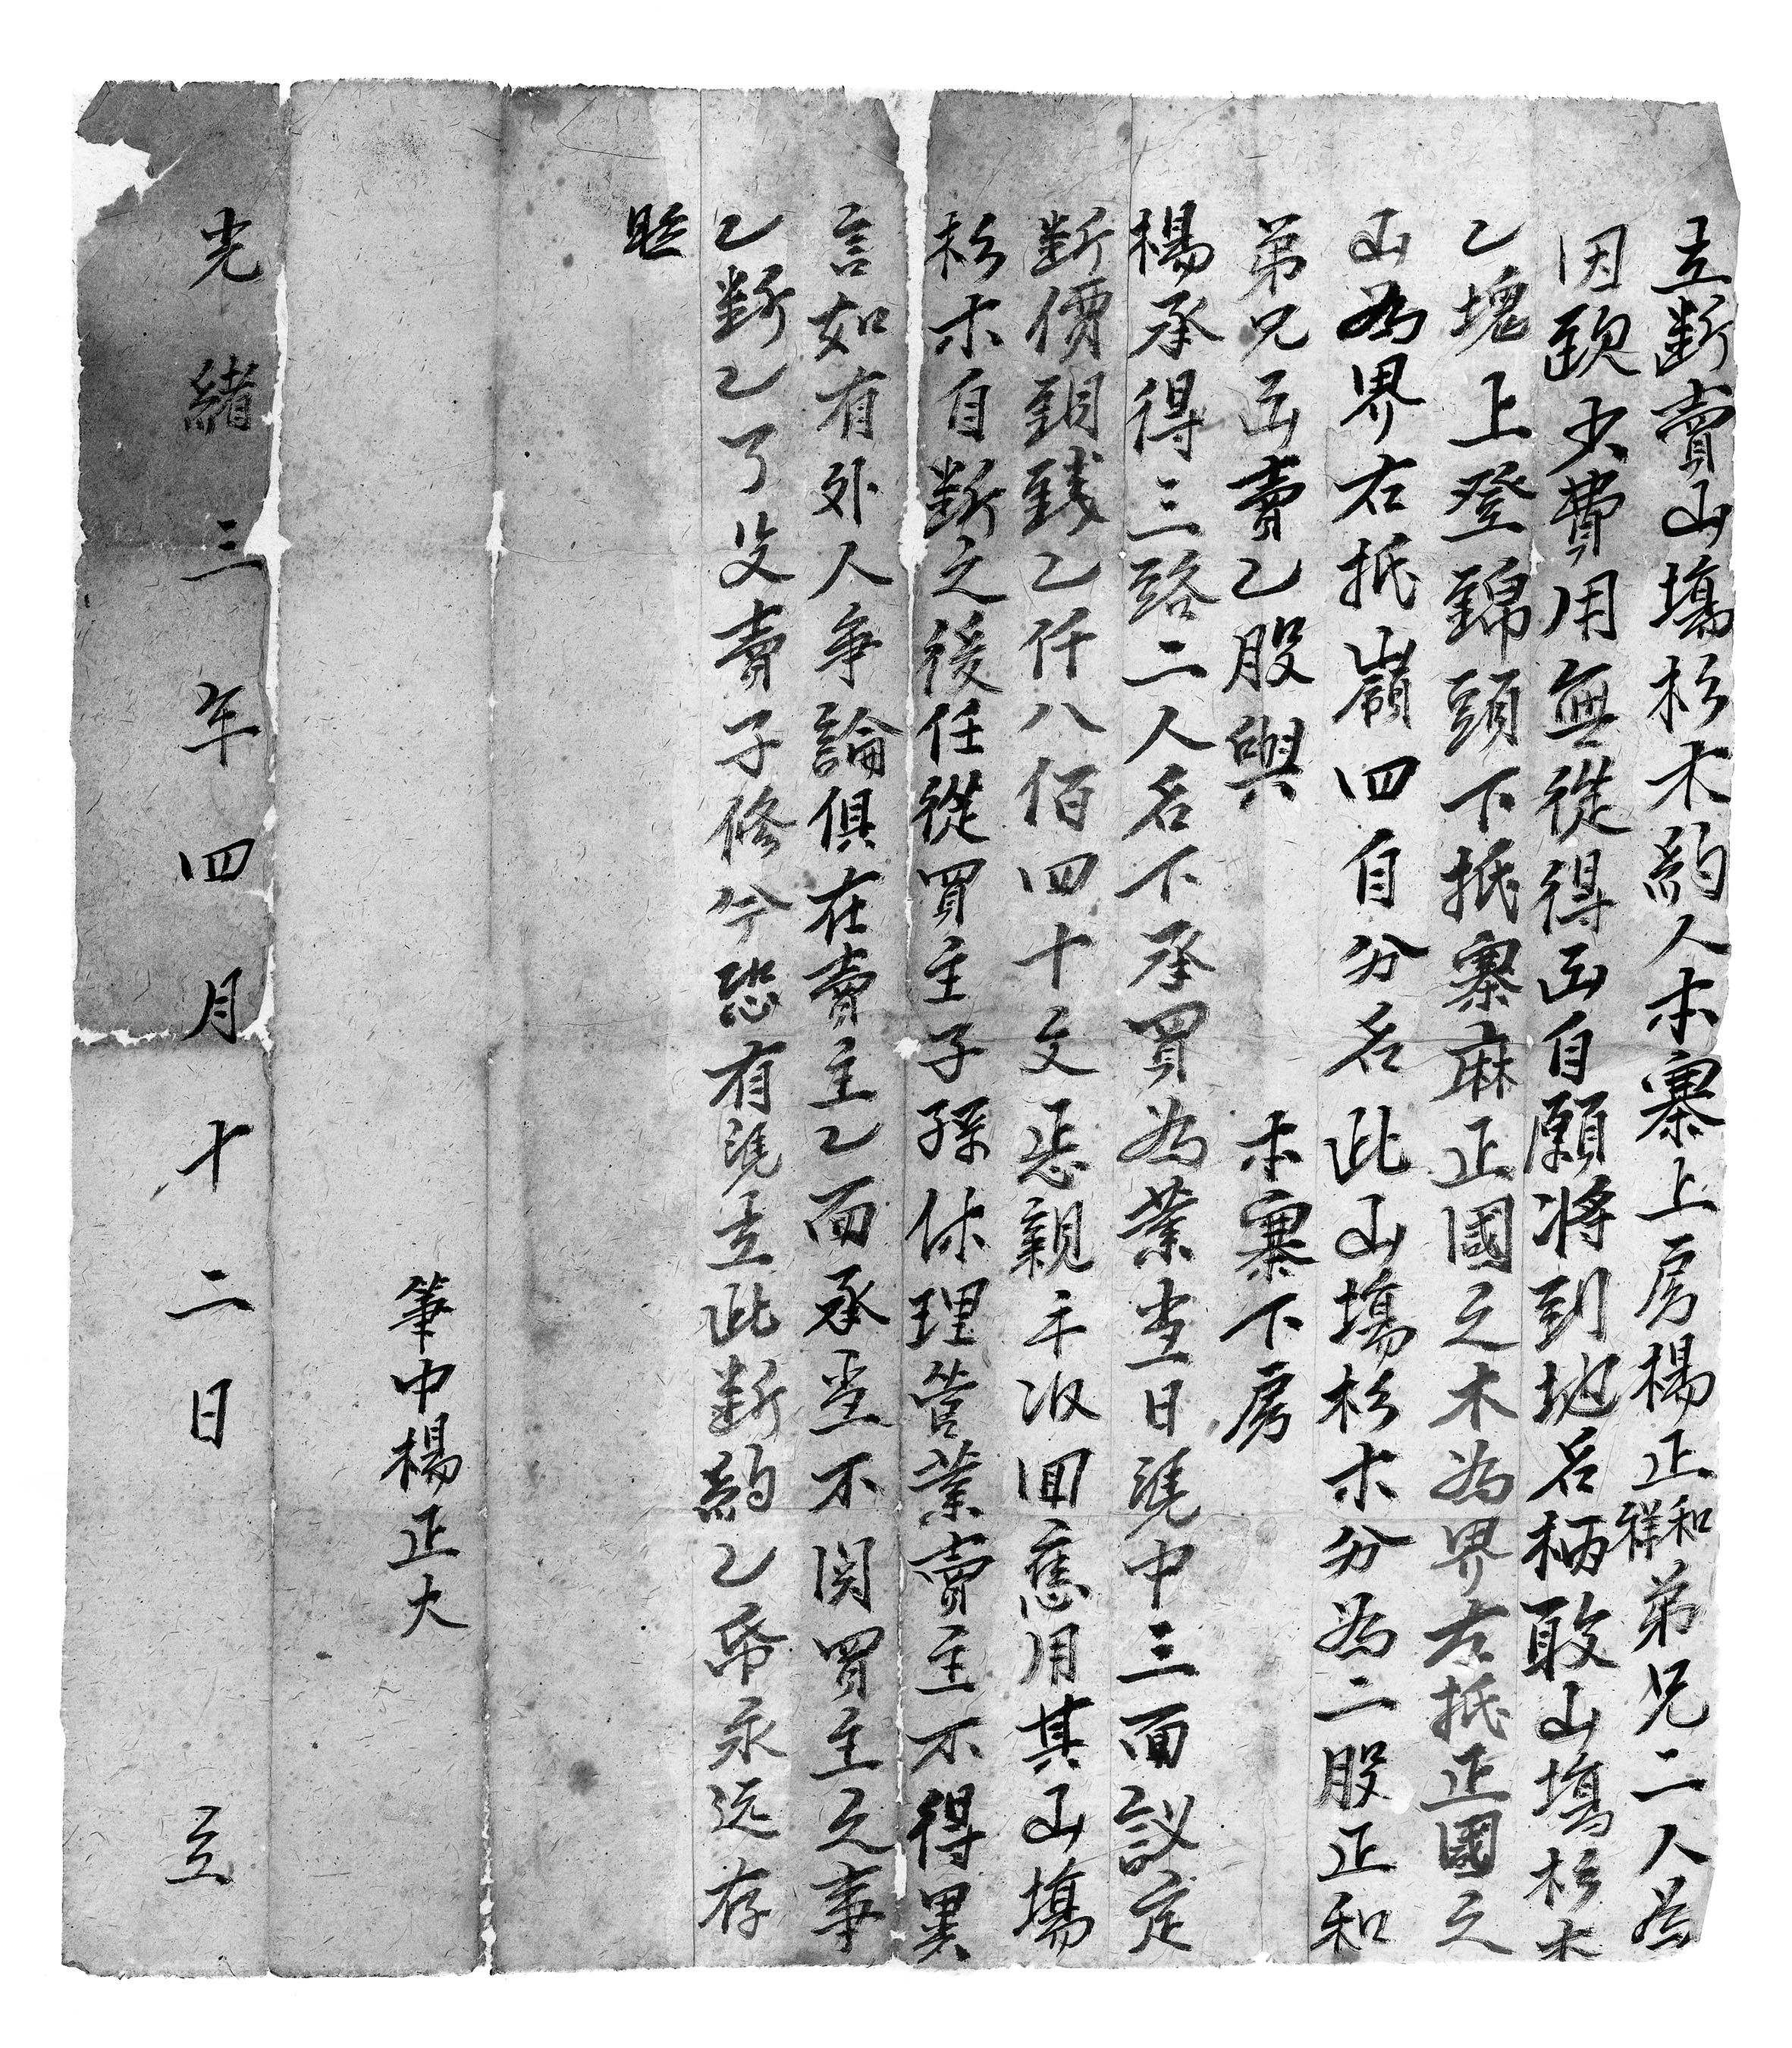 立斷賣山塲杉木約人木寨上房楊正和祥弟兄二人為
因缺少費用無從得出自願將到地名柄敢山塲杉木
乙塊上登錦頭下抵寨麻正國之木為界左抵正國之
山為界右抵嶺四自分名此山塲杉木分為二股正和
弟兄出賣乙股與　　　木寨下房
楊承得三路二人名下承買為業當日憑中三面議定
斷價銅錢乙仟八佰四十文恁親手收回應用其山塲
杉木自斷之後任從買主子孫休理管業賣主不得異
言如有外人爭論俱在賣主乙面承當不関買主之事
乙斷乙了父賣子修今恐有憑立此斷約乙帋永远存
照
筆中楊正大
光緒三年四月十二日　立